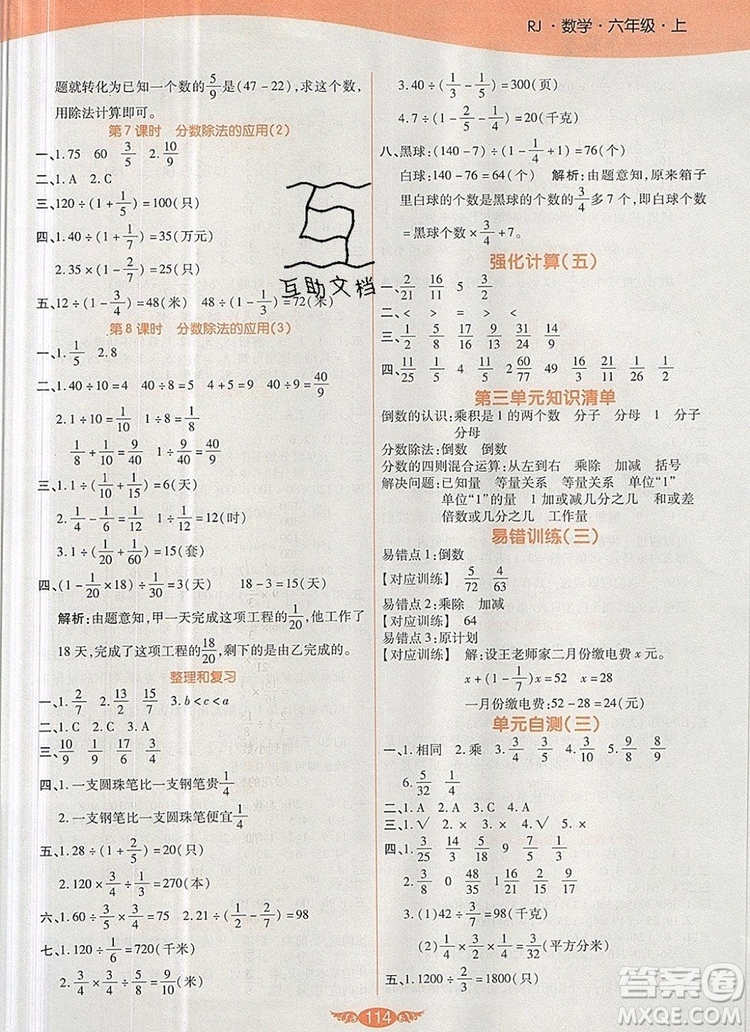 RJ·数学·六年级·上
题就转化为已知一个数的5/9是(47-22),求这个数,
用除法计算即可。
第7课时 分数除法的应用(2)
一、1.75 60 3/5 2.10/9
二、1.A 2.C
三、120÷(1+1/5)=100(只)
四、1.40÷(1+1/7)=35(万元)
2.35×(1-2/5)=21(包)
五、12÷(1-3/4)=48(米) 48÷(1-1/3)=72(米)
第8课时 分数除法的应用(3)
一、1.1/5 2.8
二、1.40÷10=4 40÷8=5 4+5=9 40÷9=40/9
2.1÷10=1/10 1÷8=1/8
1/8+1/10=9/40 1÷9/40=40/9
三、1.1÷(1/10+1/15)=6(天)
2.1/4-1/6=1/12 1÷1/12=12(时)
3.1÷(1/60+1/20)=15(套)
四、(1-1/20×18)÷1/30=3(天) 18-3=15(天)
解析:由题意知,甲一天完成这项工程的1/20,他工作了
18天,完成了这项工程的18/20,剩下的是由乙完成的。
整理和复习
一、1.2/7 2.13/2 15/7 3.b<c<a
二、1.C 2.C 3.A
三、10/9 1/9 116/15 13/7
四、1.一支圆珠笔比一支钢笔贵1/4
2.一支钢笔比一支圆珠笔便宜1/4
五、1.28÷(1+2/5)=20(只)
2.120×3/4÷1/3=270(本)
六、1.60÷3/5×3/4=75 2.21÷(1/2-2/7)=98
七、1.120÷1/6=720(千米)
2.3/4×3/4×3/4=27/64(米)
3.40÷(1/3-1/5)=300(页)
4.7÷(1-2/5-1/4)=20(千克)
八、黑球:(140-7)÷(1-1/4+1)=76(个)
白球:140-76=64(个) 解析:由题意知,原来箱子
里白球的个数是黑球的个数的3/4多7个,即白球个数
=黑球个数×3/4+7。
强化计算(五)
一、2/21 16/11 5 3/2
二、< > = <
三、12/7 35/16 9/28 31/24 14/9
四、11/25 1/6 5 2 60/77 49/6 16/11
第三单元知识清单
倒数的认识:乘积是1的两个数 分子 分母 1 分子
分母
分数除法:倒数 倒数
分数的四则混合运算:从左到右 乘除 加减 括号
解决问题:已知量 等量关系 等量关系 单位“1”
单位“1”的量 1加或减几分之几 和或差
倍数或几分之几 工作量
易错训练(三)
易错点1:倒数
【对应训练】 5/72 4/63
易错点2:乘除 加减
【对应训练】 64
易错点3:原计划
【对应训练】 解:设王老师家二月份缴电费x元。
x+(1-1/7)x=52 x=28
一月份缴电费:52-28=24(元)
单元自测(三)
一、1.相同 2.乘 3.3/4 3/5 4.3/8 5.9/10
6.5/32 1/4
二、1.A 2.A 3.C 4.C
三、1.√ 2.× 3.√ 4.× 5.×
四、1.3/25 3/14 9/8 2/3
2.3/8 0 48/35 16/3 1/2
3.(1)42÷3/7=98(千克)
(2)3/4×1/4÷1/2=3/32(平方分米)
五、1.1200÷2/3=1800(只)
互助文档
114
答案卷
MXQE.COM